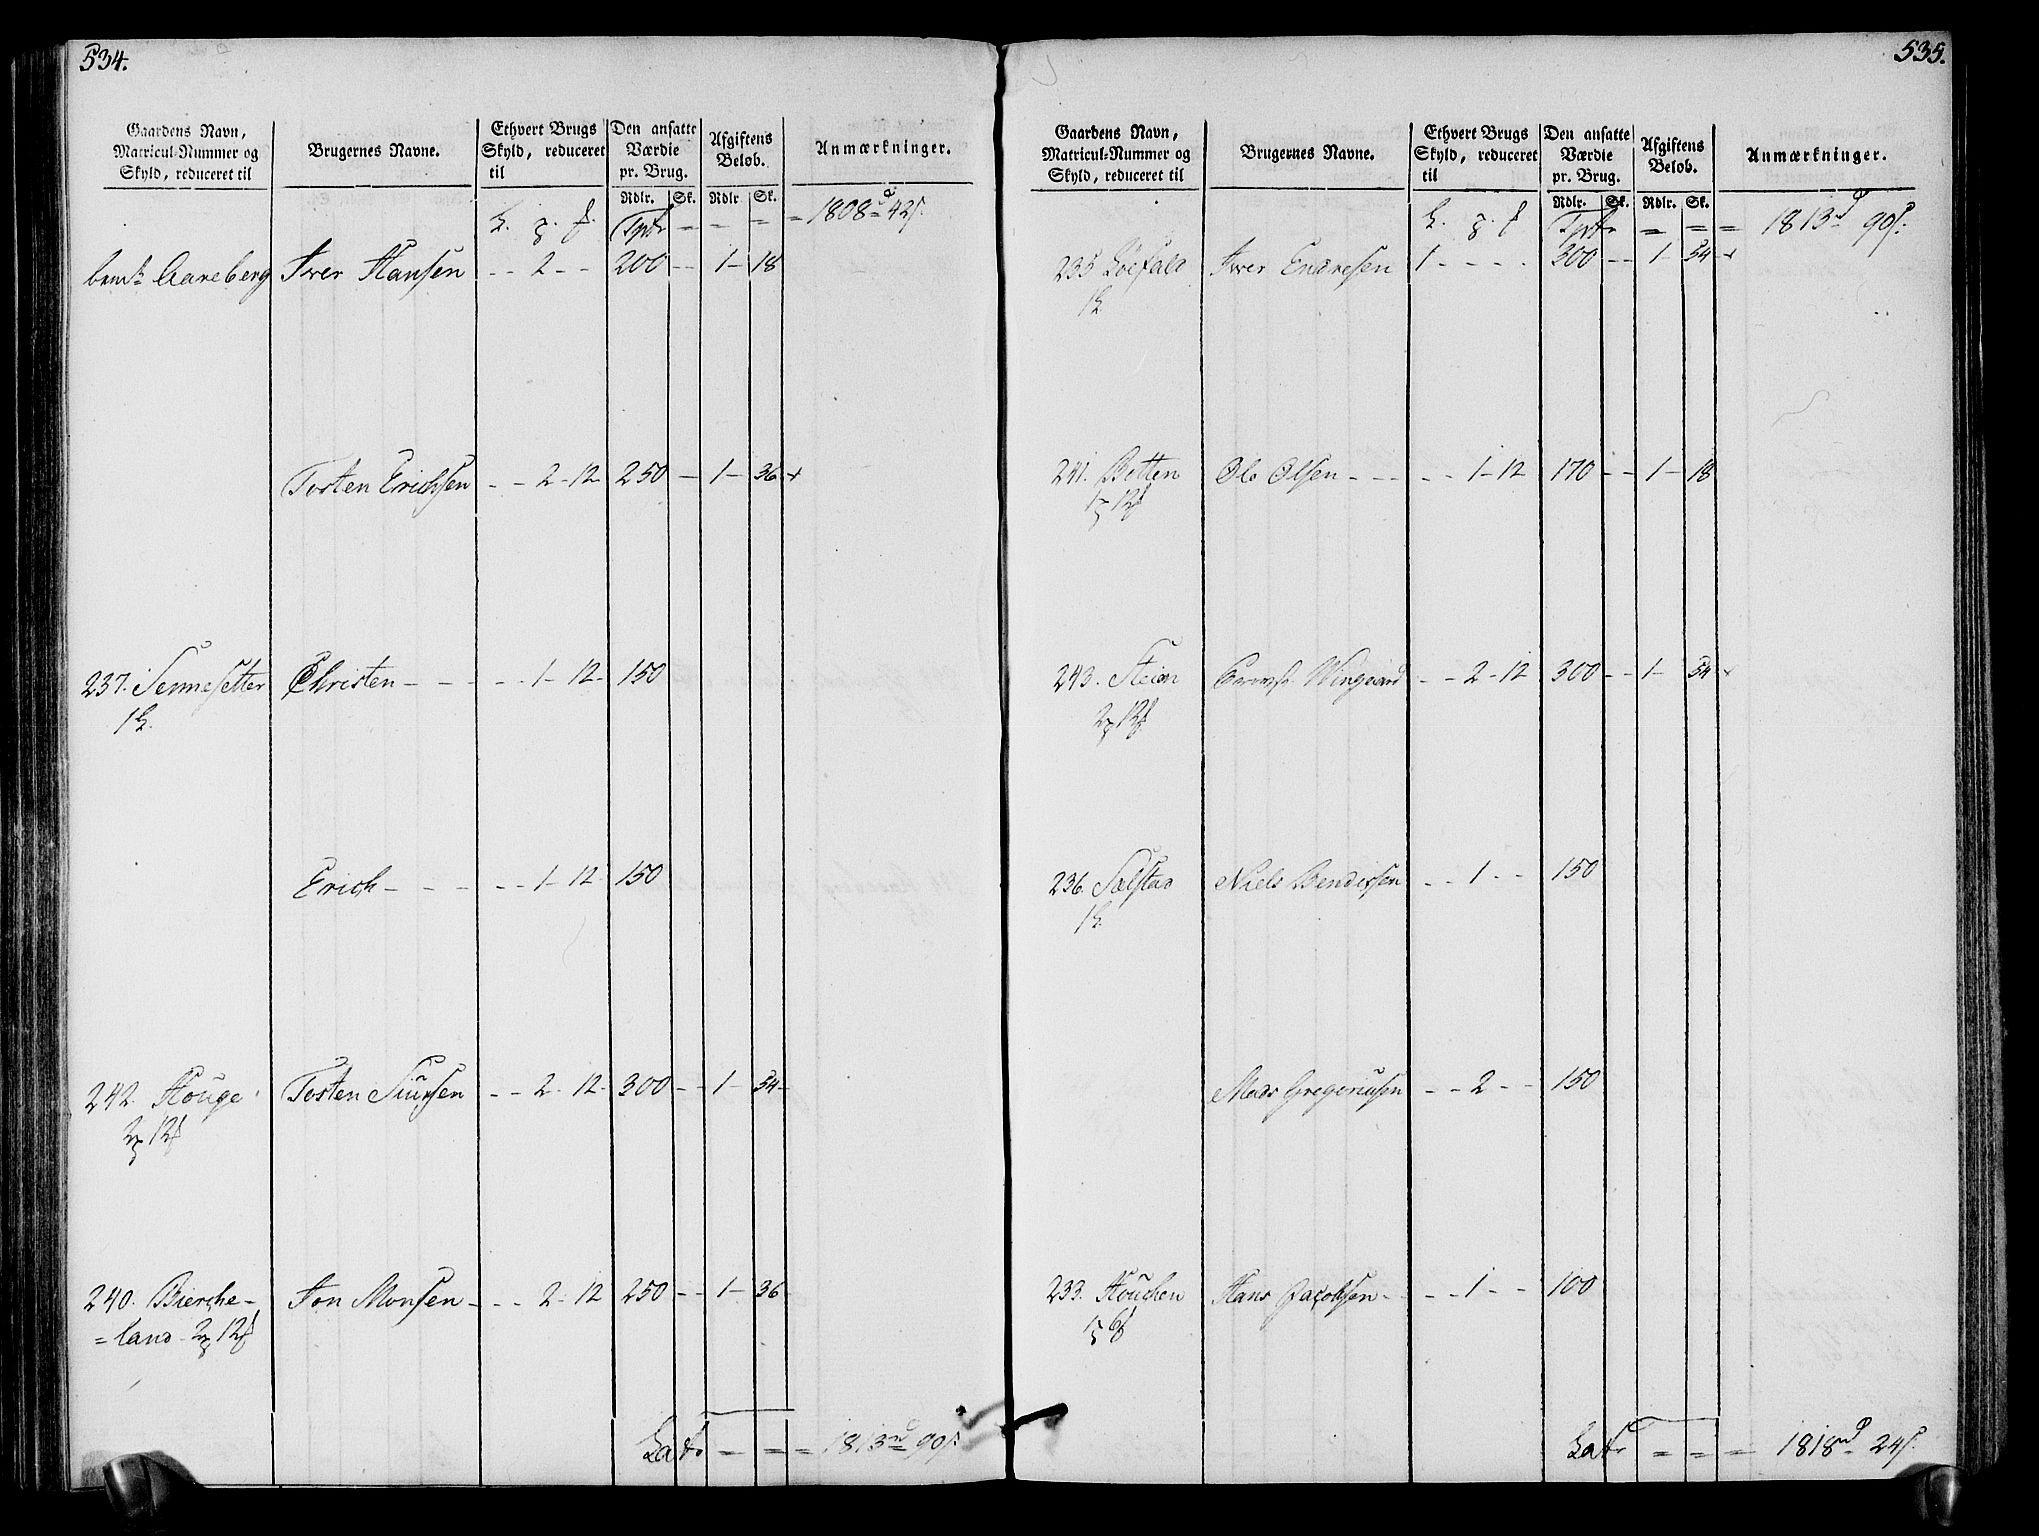 534.
Gaardens Navn, Matricul-Nummer og Skyld, reduceret til
Brugernes Navne.
Ethvert Brugs Skyld, reduceret til
Den ansatte Værdie pr. Brug.
Afgiftens Beløb.
Anmærkninger.
Rdlr. Sk. Rdlr Sk.
Tptr = = = = 1808 d 42 s.
Aareberg Iver Hansen - - 2 - - 200 - - 1 - 18
Torsten Erichsen - - 2 - 12 250 - 1 - 36 +
237. Sennesetter Christen - - - - - 1 - 12 - 150
1
Erich - - - - - - 1 - 12 - 150
242. Houge Torsten Siursen - - 2 - 12 - 300 - - 1 - 54 -
2 12
240. Bierche- Jon Monsen - - - 2 - 12 250 - - 1 - 36
= land - 2 12
Latr = = = 1813 d 90 s
535.
Gaardens Navn, Matricul-Nummer og Skyld, reduceret til
Brugernes Navne.
Ethvert Brugs Skyld, reduceret til
Den ansatte Værdie pr. Brug.
Afgiftens Beløb.
Anmærkninger.
Rdlr. Sk. Rdlr. Sk.
Tptr = = = 1813 d 90 s.
235 Løefald Iver Endresen 1 - - - - 300 - - 1 - 54 +
1
241. Botten Ole Olsen - - - - - 1 - 12 170 - - 1 - 18
1 12
243. Steien Wingaard - - 2 - 12 300 - - 1 - 54
2 12
236. Sælstad Niels Bendixsen - - 1 - - 150
1
Mads Gregeriusen - - 2 - - 150
233. Houchen Hans Jacobsen - - - 1 - - 100
1 6
Latr = = = 1818 d 24 s.